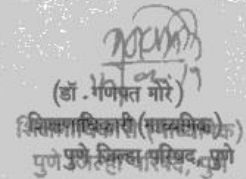 (डॉ. गणपत मोरे)
शिक्षणाधिकारी (माध्यमिक)
पुणे जिल्हा परिषद, पुणे